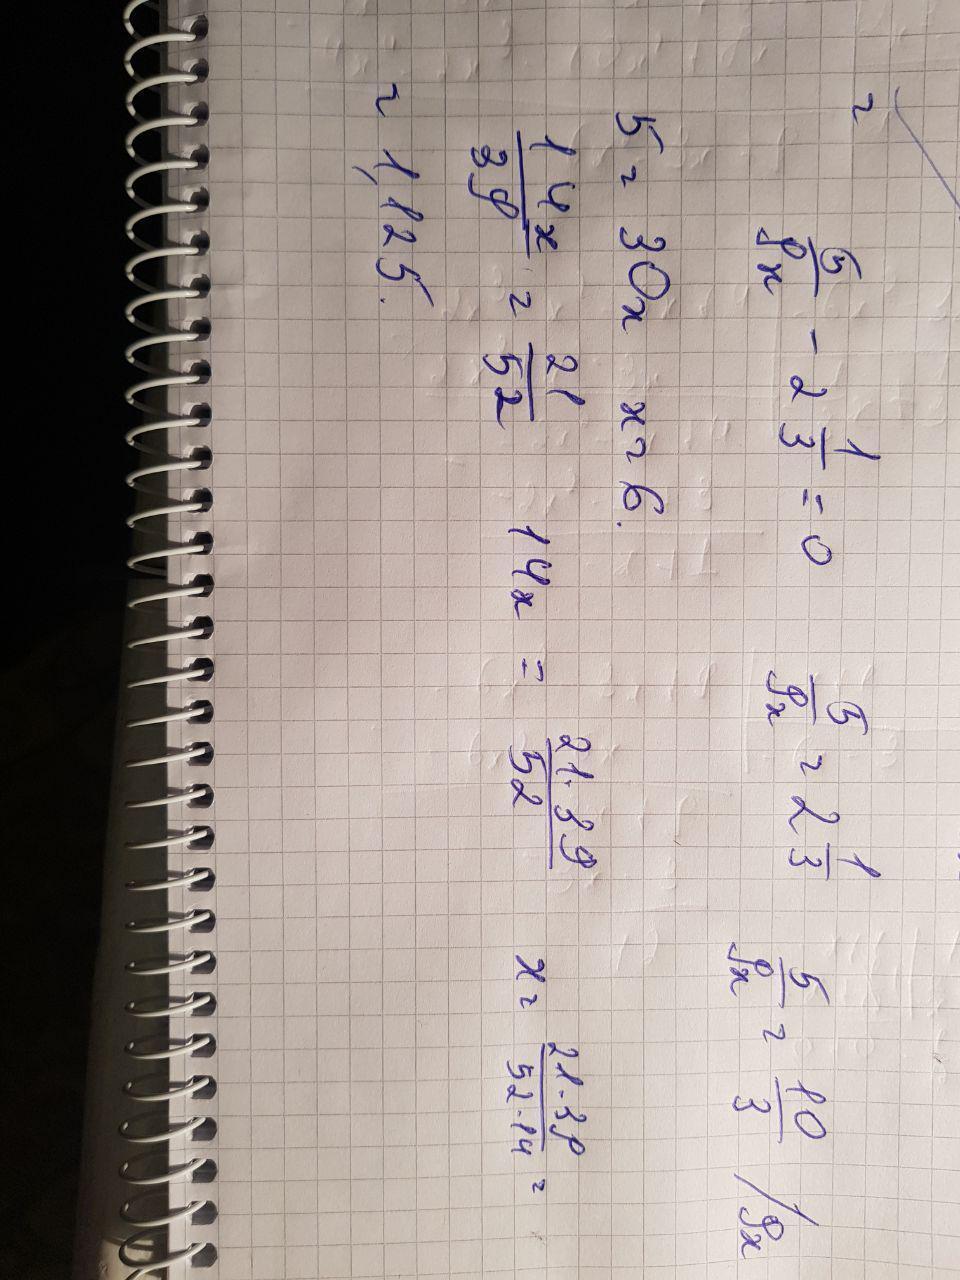 =
5/9x - 2 1/3 = 0 5/9x = 2 1/3 5/9x = 10/3 /9x
5 = 30x x = 6.
14x/39 = 21/52 14x = 21·39/52 x = 21·39/52·14 =
= 1,125.